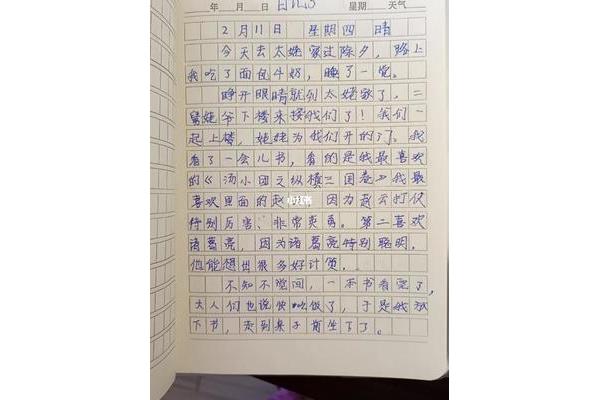 年 月 日 日记3 星期 天气
2月11日 星期四 晴
今天去太姥家过除夕，路上
我吃了面包牛奶，睡了一觉。
睁开眼睛就到太姥家了。二
舅姥爷下楼来接我们了！我们一
起上楼，姥姥为我们开的门。我
看了一会儿书，看的是我最喜欢
的《汤小团之纵横三国卷》我最
喜欢里面的赵 因为赵云打仗
特别厉害、非常英勇。第二喜欢
诸葛亮，因为诸葛亮特别聪明，
他能想出很多好计策。
不知不觉间，一本书看完了，
大人们也说快吃饭了，于是我放
下书，走到桌子前坐了了。
小红书